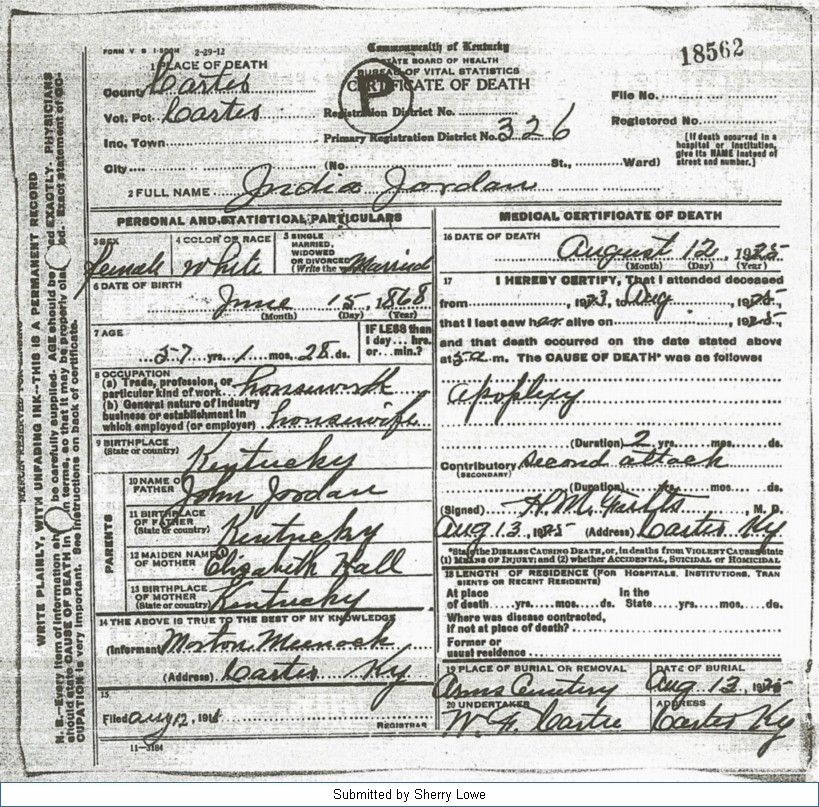 FORM V S 1-500M 2-29-12
Commonwealth of Kentucky
STATE BOARD OF HEALTH
BUREAU OF VITAL STATISTICS
CERTIFICATE OF DEATH
18562
P
1 PLACE OF DEATH
County Carter
Vot. Pct. Carter
Inc. Town
City (No. St., Ward)
Registration District No.
Primary Registration District No. 326
File No.
Registered No.
[If death occurred in a
hospital or institution,
give its NAME instead of
street and number.]
2 FULL NAME India Jordan
PERSONAL AND STATISTICAL PARTICULARS
3 SEX
female
4 COLOR OR RACE
White
5 SINGLE
MARRIED,
WIDOWED
OR DIVORCED
(Write the Married
6 DATE OF BIRTH
June 15, 1868
(Month) (Day) (Year)
7 AGE
57 yrs. 1 mos. 28 ds.
IF LESS than
1 day... hrs.
or... min.?
8 OCCUPATION
(a) Trade, profession, or
particular kind of work housework
(b) General nature of industry
business or establishment in
which employed (or employer) housewife
9 BIRTHPLACE
(State or country)
Kentucky
PARENTS
10 NAME OF
FATHER
John Jordan
11 BIRTHPLACE
OF FATHER
(State or country)
Kentucky
12 MAIDEN NAME
OF MOTHER
Elizabeth Hall
13 BIRTHPLACE
OF MOTHER
(State or country)
Kentucky
14 THE ABOVE IS TRUE TO THE BEST OF MY KNOWLEDGE
(Informant) Morton
(Address) Carter Ky
15
Filed aug 12, 191
REGISTRAR
11-3184
MEDICAL CERTIFICATE OF DEATH
16 DATE OF DEATH
August 12, 1925
(Month) (Day) (Year)
17 I HEREBY CERTIFY, That I attended deceased
from , 1923, to Aug , 1925,
that I last saw her alive on , 1925,
and that death occurred on the date stated above
at 5 a m. The CAUSE OF DEATH* was as follows:
apoplexy
(Duration) 2 yrs. mos. ds.
Contributory second attack
(SECONDARY)
(Duration) yrs. mos. ds.
(Signed) H. M. M. D.
Aug 13, 1925 (Address) Carter Ky
*State the DISEASE CAUSING DEATH, or, in deaths from VIOLENT CAUSES state
(1) MEANS OF INJURY; and (2) whether ACCIDENTAL, SUICIDAL or HOMICIDAL
18 LENGTH OF RESIDENCE (FOR HOSPITALS, INSTITUTIONS, TRAN
SIENTS OR RECENT RESIDENTS)
At place In the
of death yrs. mos. ds. State yrs. mos. ds.
Where was disease contracted,
if not at place of death?
Former or
usual residence
19 PLACE OF BURIAL OR REMOVAL
Arms Cemetery
DATE OF BURIAL
Aug 13, 1925
20 UNDERTAKER
ADDRESS
Carter Ky
MARGIN RESERVED FOR BINDING
WRITE PLAINLY, WITH UNFADING INK--THIS IS A PERMANENT RECORD
N. B.--Every item of information sh be carefully supplied. AGE should be ed EXACTLY. PHYSICIANS
should state CAUSE OF DEATH in n terms, so that it may be properly clas ed. Exact statement of OC-
CUPATION is very important. See instructions on back of certificate.
Submitted by Sherry Lowe